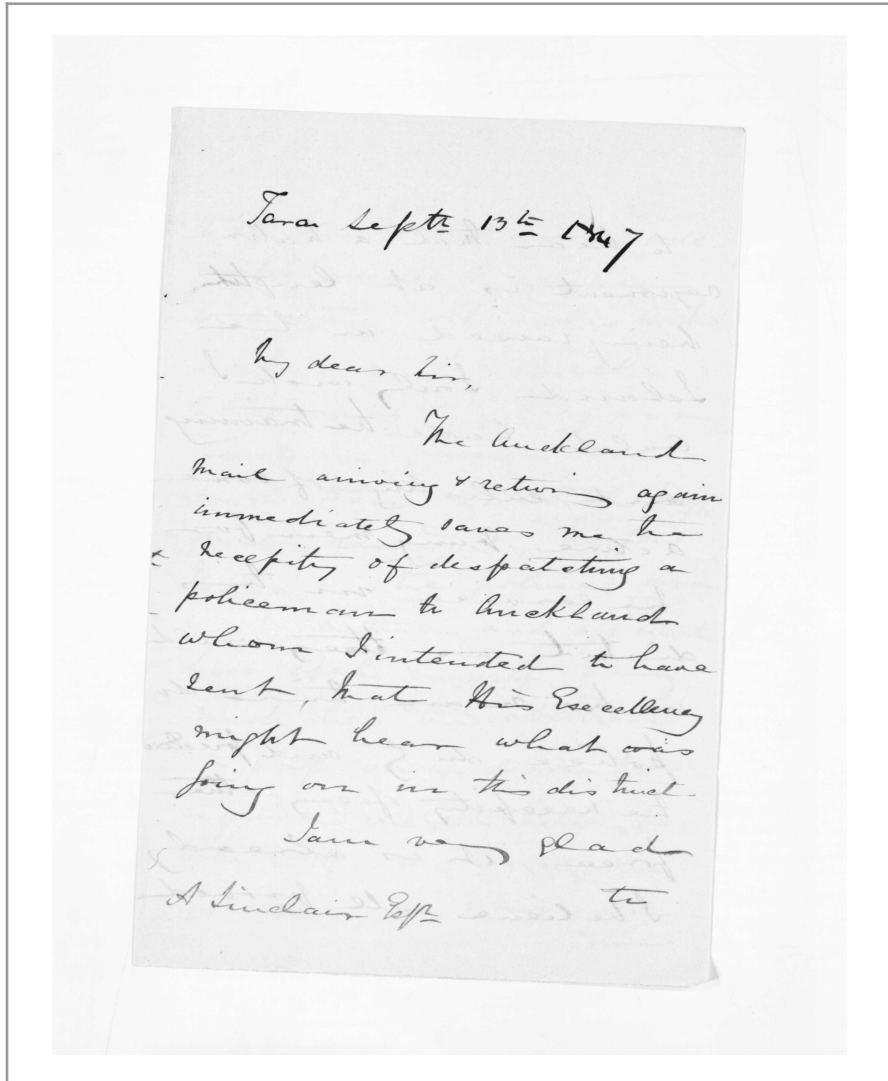 Tara Septh 13th 1847
My dear Sir,
The Auckland
mail arriving & returning again
immediately saves me the
necessity of despatching a
policeman to Auckland
whom I intended to have
sent, that His Excellency
might hear what was
going on in this district
I am very glad
to
A Sinclair Esqr